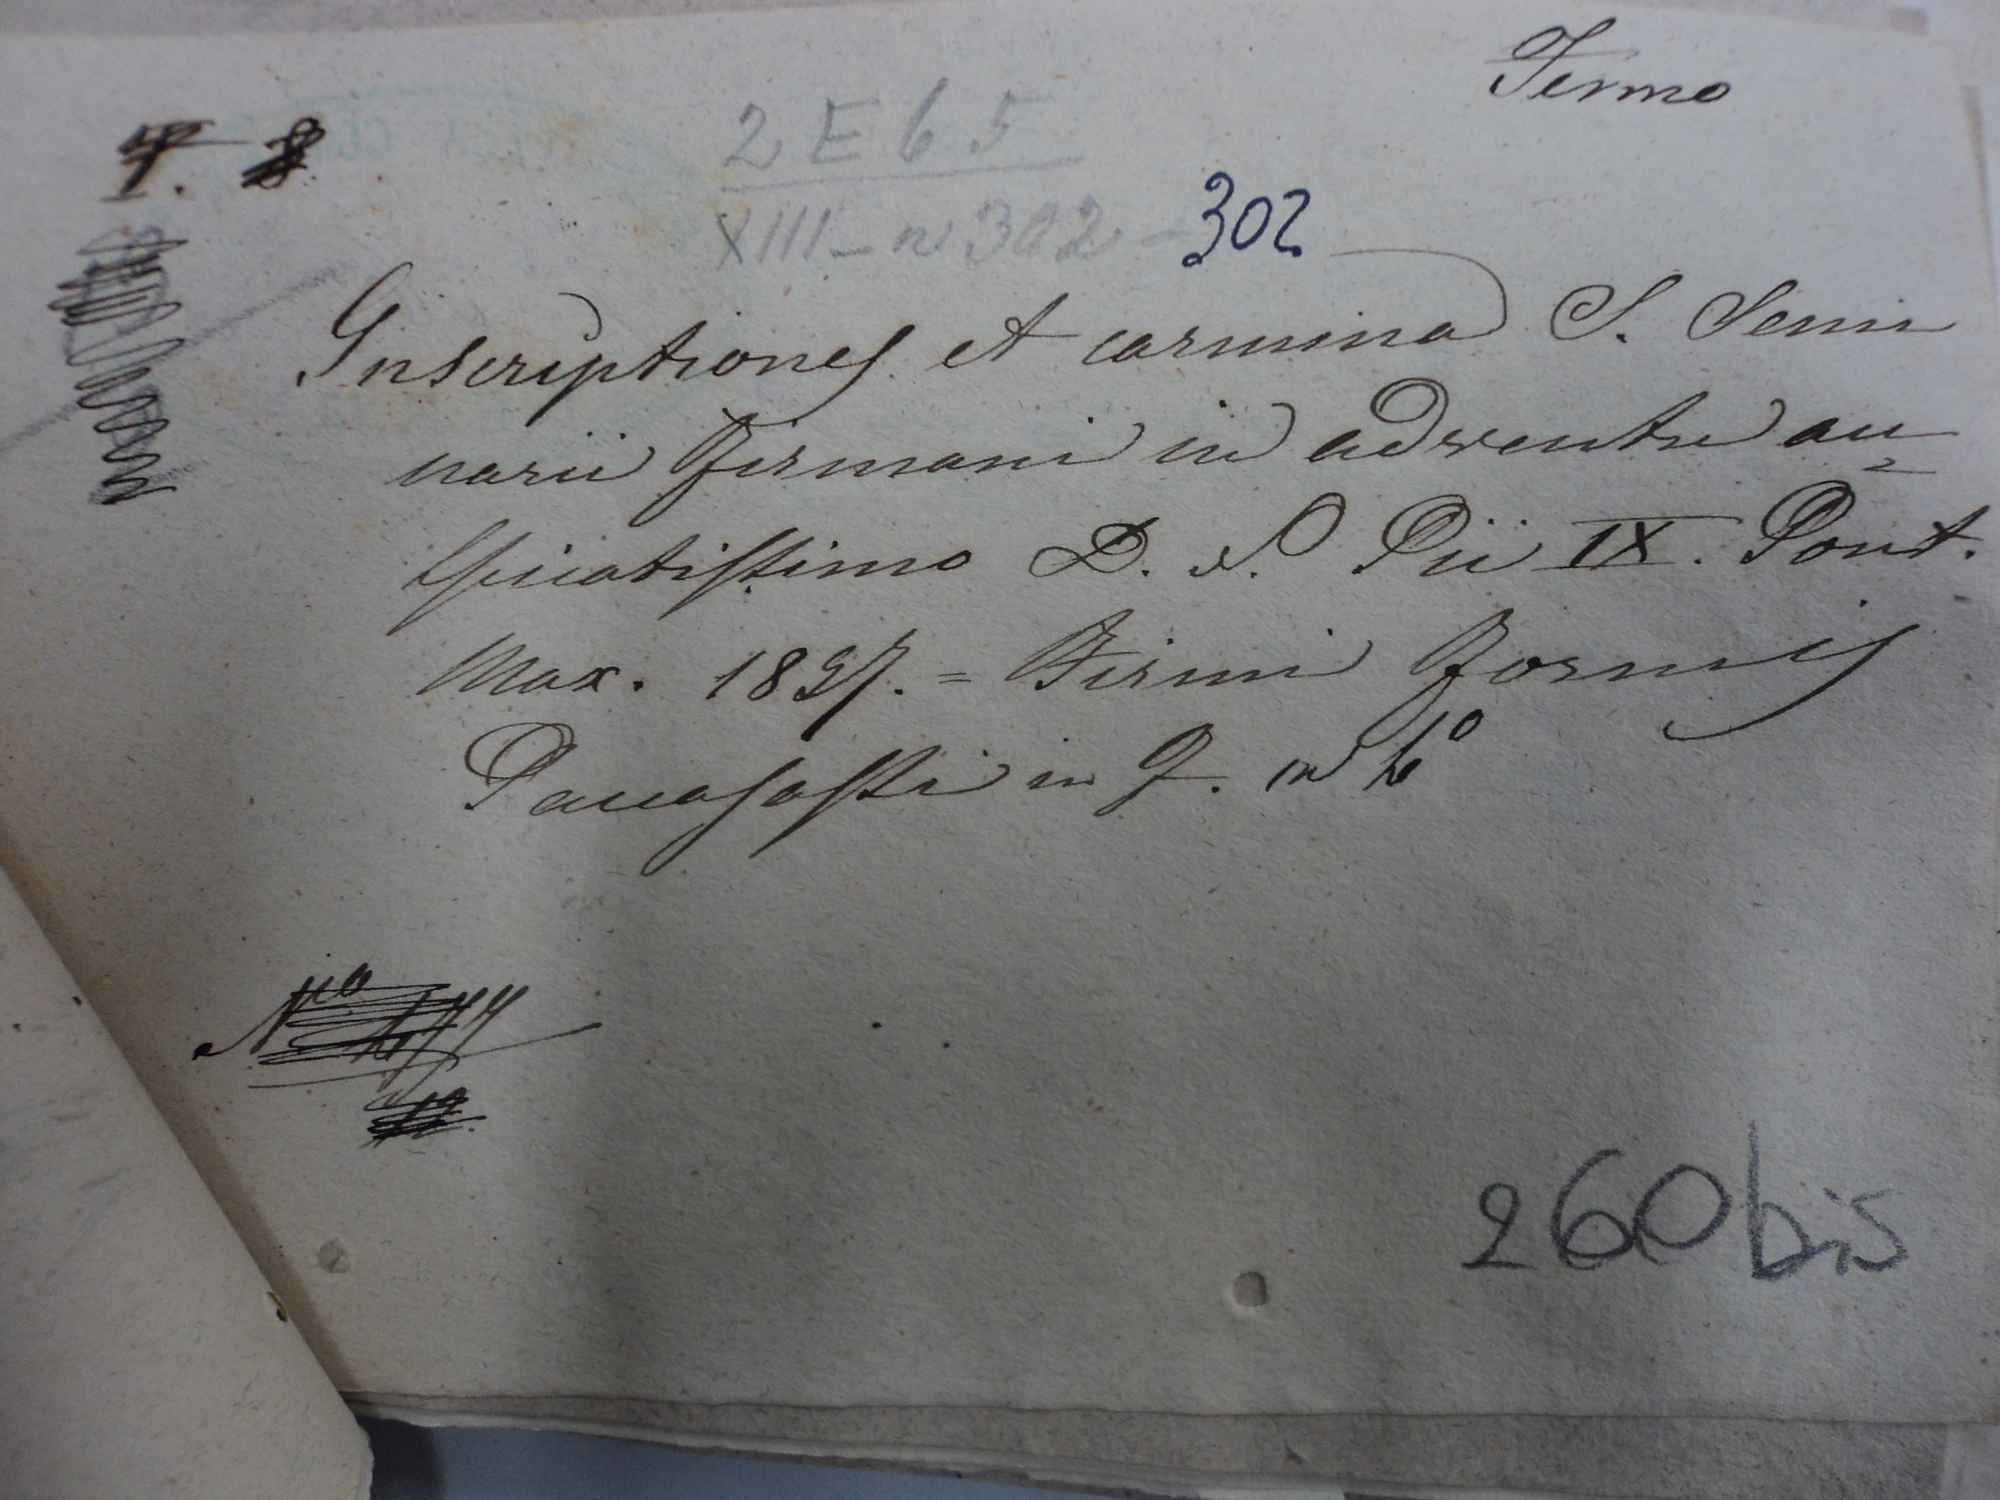 Fermo
2 E 65
XIII - n 302 - 302
Inscriptiones et carmina S. Semi
narii Firmani in adventu au=
spicatissimo D. N. Pii IX. Pont.
Max. 1857. = Firmi Formis
Paccasassi in f. in 4º
Nº
260 bis